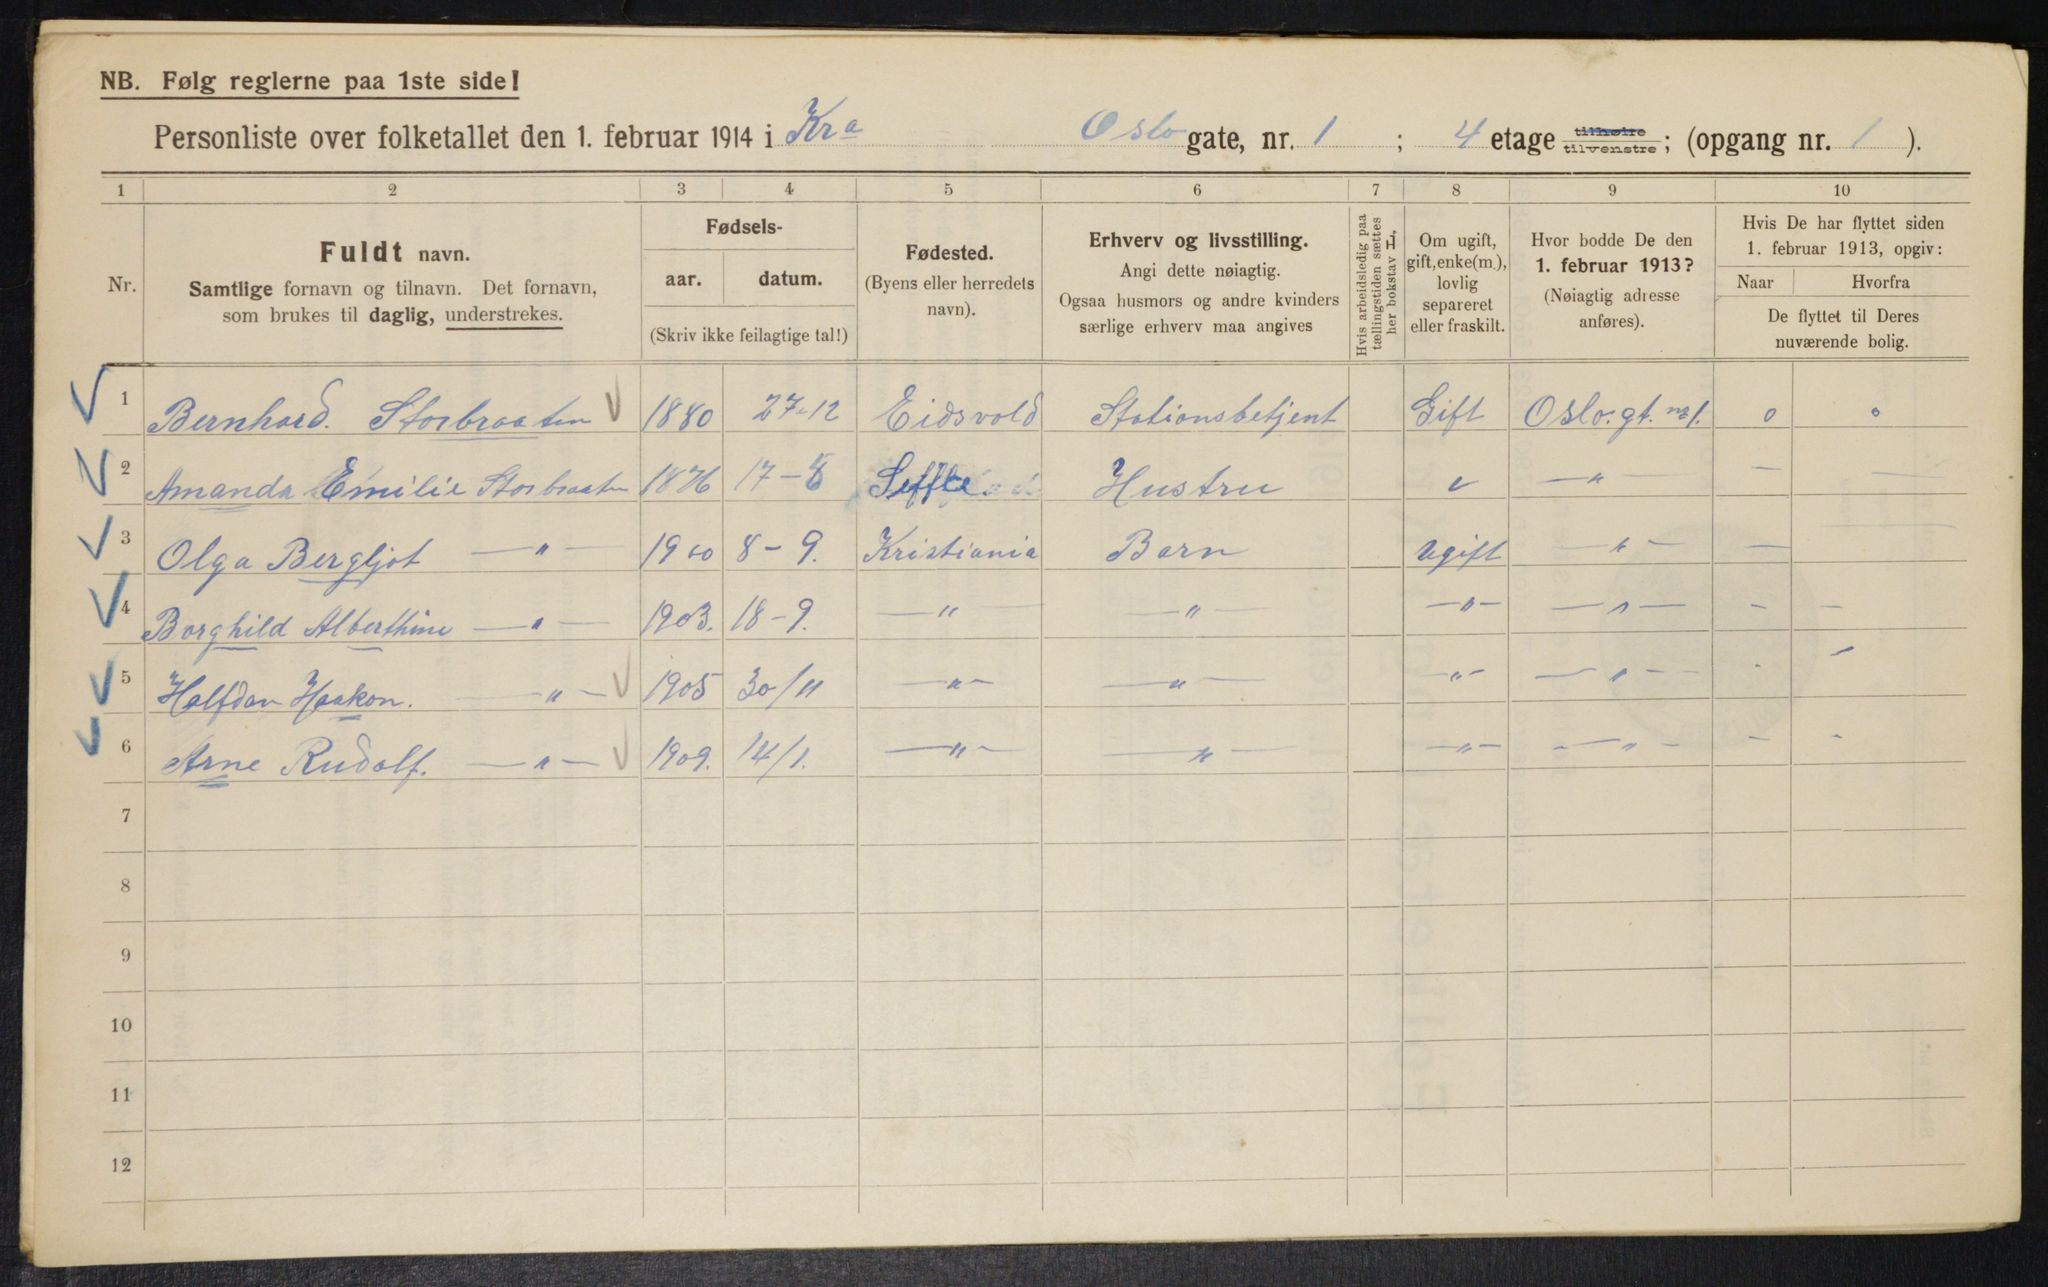 NB. Følg reglerne paa 1ste side!
Personliste over folketallet den 1. februar 1914 i Kra Oslo gate, nr. 1 ; 4 etage tilhøire tilvenstre; (opgang nr. 1 ).
1 2 3 4 5 6 7 8 9 10
Nr.
Fuldt navn.
Samtlige fornavn og tilnavn. Det fornavn,
som brukes til daglig, understrekes.
Fødsels-
aar. datum.
(Skriv ikke feilagtige tal!)
Fødested.
(Byens eller herredets
navn).
Erhverv og livsstilling.
Angi dette nøiagtig.
Ogsaa husmors og andre kvinders
særlige erhverv maa angives
Hvis arbeidsledig paa
tællingstiden sættes
her bokstav L,
Om ugift,
gift, enke(m.),
lovlig
separeret
eller fraskilt.
Hvor bodde De den
1. februar 1913?
(Nøiagtig adresse
anføres).
Hvis De har flyttet siden
1. februar 1913, opgiv:
Naar Hvorfra
De flyttet til Deres
nuværende bolig.
1 Bernhard. Storbraaten 1880 27-12 Eidsvold Stationsbetjent Gift Oslo.gt. nr 1. o o
2 Amanda Emilie Storbraaten 1876 17-8 Seffle Hustru " — " — — —
3 Olga Bergljot — " — 1900 8-9. Kristiania Barn Ugift — " — —
4 Borghild Alberthine — " — 1903. 18-9. — " — — " — — " — — " — — —
5 Halfdan Haakon. — " — 1905 30/11 — " — — " — — " — — " — - —
6 Arne Rudolf. — " — 1909. 14/1. — " — — " — — " — — " — — -
7
8
9
10
11
12